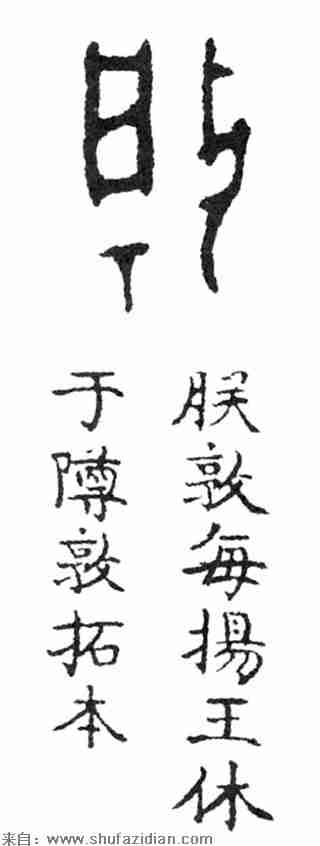 朕敦每揚王休
于敦拓本
来自：www.shufazidian.com